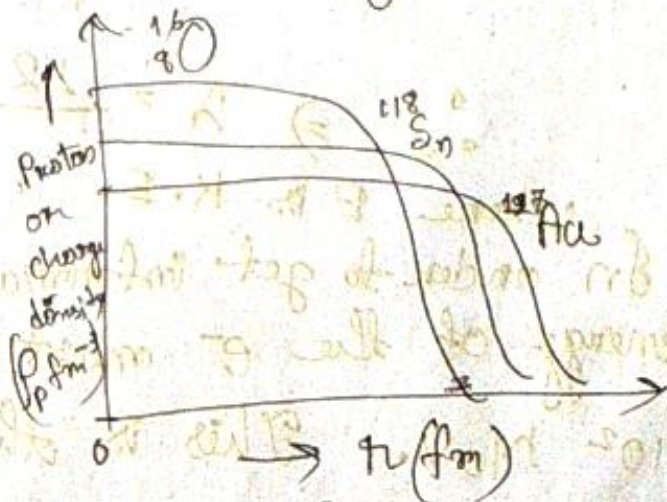 ¹⁶₈O
¹¹⁸Sn
¹⁹⁷Au
Proton
or
charge
density
(ρₚ fm⁻³)
0
r (fm)